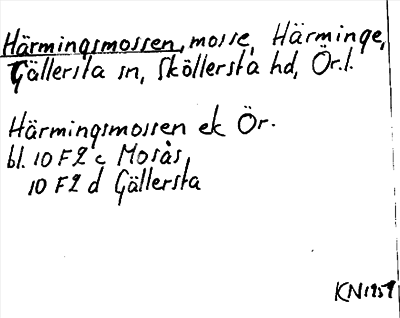 Härmingsmossen, mosse, Härminge,
Gällersta sn, Sköllersta hd, Ör.l.
Härmingsmossen ek Ör.
bl. 10 F2 c Mosås,
10 F2 d Gällersta
KN1959